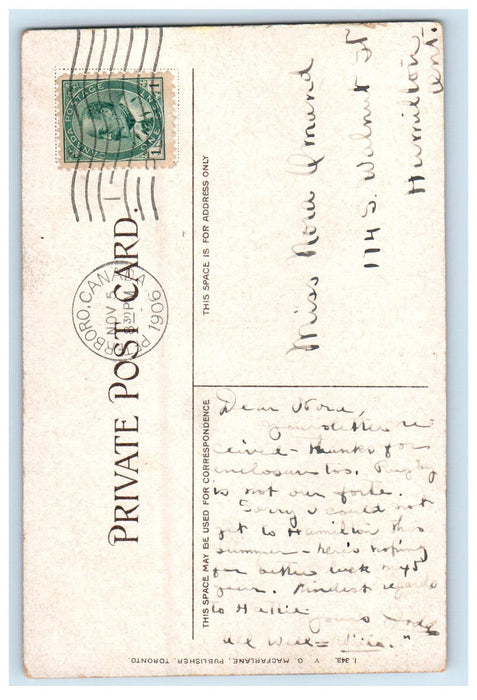 PRIVATE POST CARD.
CANADA POSTAGE
1 1
ONE
PETERBORO, CANADA
NOV 5
8 30 PM
1906
THIS SPACE MAY BE USED FOR CORRESPONDENCE
THIS SPACE IS FOR ADDRESS ONLY
Dear Nora,
Your letter re
ceived - thanks for
enclosure too.
is not our forte.
Sorry I could not
get to Hamilton this
summer - here's hoping
for better luck next
year. Kindest regards
to Hattie
Yours
Will
Miss Nora Omand
114 S. Walnut St
Hamilton
Ont.
L 343. V O. MACFARLANE, PUBLISHER, TORONTO.